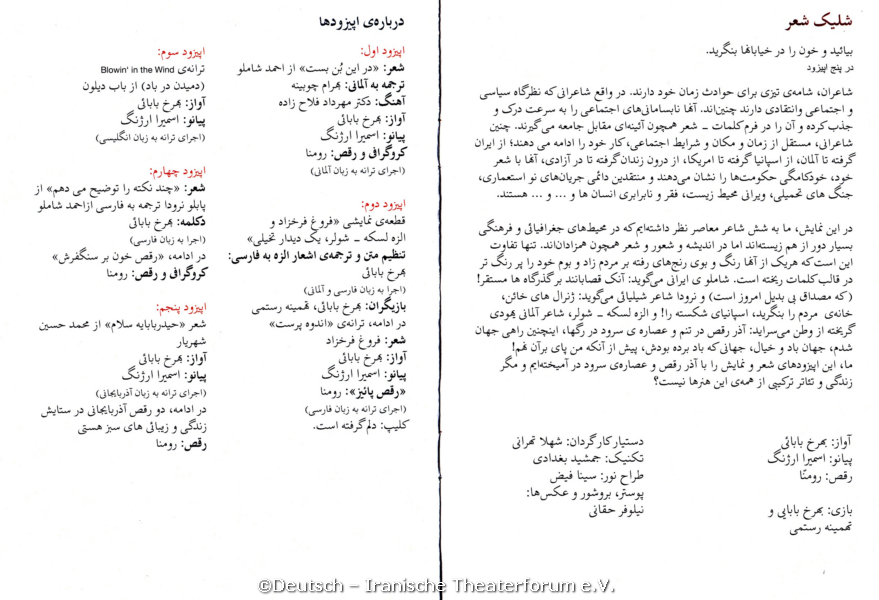 شلیک شعر
بیائید و خون را در خیابانها بنگرید.
در پنج اپیزود
شاعران، شامه‌ی تیزی برای حوادث زمان خود دارند. در واقع شاعرانی که نظرگاه سیاسی
و اجتماعی وانتقادی دارند چنین‌اند. آنها نابسامانی‌های اجتماعی را به سرعت درک و
جذب کرده و آن را در فرم کلمات – شعر همچون آئینه‌ای مقابل جامعه می‌گیرند. چنین
شاعرانی، مستقل از زمان و مکان و شرایط اجتماعی، کار خود را ادامه می دهند؛ از ایران
گرفته تا آلمان، از اسپانیا گرفته تا امریکا، از درون زندان گرفته تا در آزادی، آنها با شعر
خود، خودکامگی حکومت‌ها را نشان می‌دهند و منتقدین دائمی جریان‌های نو استعماری،
جنگ های تحمیلی، ویرانی محیط زیست، فقر و نابرابری انسان ها و ... و ... هستند.
در این نمایش، ما به شش شاعر معاصر نظر داشته‌ایم که در محیط‌های جغرافیائی و فرهنگی
بسیار دور از هم زیسته‌اند اما در اندیشه و شعور و شعر همچون همزادان‌اند. تنها تفاوت
این است که هریک از آنها رنگ و بوی رنج‌های رفته بر مردم زاد و بوم خود را پر رنگ تر
در قالب کلمات ریخته است. شاملو ی ایرانی می‌گوید: آنک قصابانند بر گذرگاه ها مستقر!
(که مصداق بی بدیل امروز است) و نرودا شاعر شیلیائی می‌گوید: ژنرال های خائن،
خانه‌ی مردم را بنگرید، اسپانیای شکسته را! و الزه لسکه – شولر، شاعر آلمانی یهودی
گریخته از وطن می‌سراید: آذر رقص در تنم و عصاره ی سرود در رگها، اینچنین راهی جهان
شدم، جهان باد و خیال، جهانی که باد برده بودش، پیش از آنکه من پای برآن نهم!
ما، این اپیزودهای شعر و نمایش را با آذر رقص و عصاره‌ی سرود در آمیخته‌ایم و مگر
زندگی و تئاتر ترکیبی از همه‌ی این هنرها نیست؟
آواز: بهرخ بابائی
پیانو: اسمیرا ارژنگ
رقص: رومنّا
بازی: بهرخ بابایی و
تهمینه رستمی
دستیار کارگردان: شهلا تهرانی
تکنیک: جمشید بغدادی
طراح نور: سینا فیض
پوستر، بروشور و عکس‌ها:
نیلوفر حقانی
درباره‌ی اپیزودها
اپیزود اول:
شعر: «در این بُن بست» از احمد شاملو
ترجمه به آلمانی: بهرام چوبینه
آهنگ: دکتر مهرداد فلاح زاده
آواز: بهرخ بابائی
پیانو: اسمیرا ارژنگ
کروگرافی و رقص: رومنا
(اجرای ترانه به زبان آلمانی)
اپیزود دوم:
قطعه‌ی نمایشی «فروغ فرخزاد و
الزه لسکه – شولر، یک دیدار تخیلی»
تنظیم متن و ترجمه‌ی اشعار الزه به فارسی:
بهرخ بابائی
(اجرا به زبان فارسی و آلمانی)
بازیگران: بهرخ بابائی، تهمینه رستمی
در ادامه، ترانه‌ی «اندوه پرست»
شعر: فروغ فرخزاد
آواز: بهرخ بابائی
پیانو: اسمیرا ارژنگ
«رقص پائیز»: رومنا
(اجرای ترانه به زبان فارسی)
کلیپ: دلم گرفته است.
اپیزود سوم:
ترانه‌ی Blowin' in the Wind
(دمیدن در باد) از باب دیلون
آواز: بهرخ بابائی
پیانو: اسمیرا ارژنگ
(اجرای ترانه به زبان انگلیسی)
اپیزود چهارم:
شعر: «چند نکته را توضیح می دهم» از
پابلو نرودا ترجمه به فارسی ازاحمد شاملو
دکلمه: بهرخ بابائی
(اجرا به زبان فارسی)
در ادامه، «رقص خون بر سنگفرش»
کروگرافی و رقص: رومنا
اپیزود پنجم:
شعر «حیدربابایه سلام» از محمد حسین
شهریار
آواز: بهرخ بابائی
پیانو: اسمیرا ارژنگ
(اجرای ترانه به زبان آذربایجانی)
در ادامه، دو رقص آذربایجانی در ستایش
زندگی و زیبائی های سبز هستی
رقص: رومنا
©Deutsch – Iranische Theaterforum e.V.